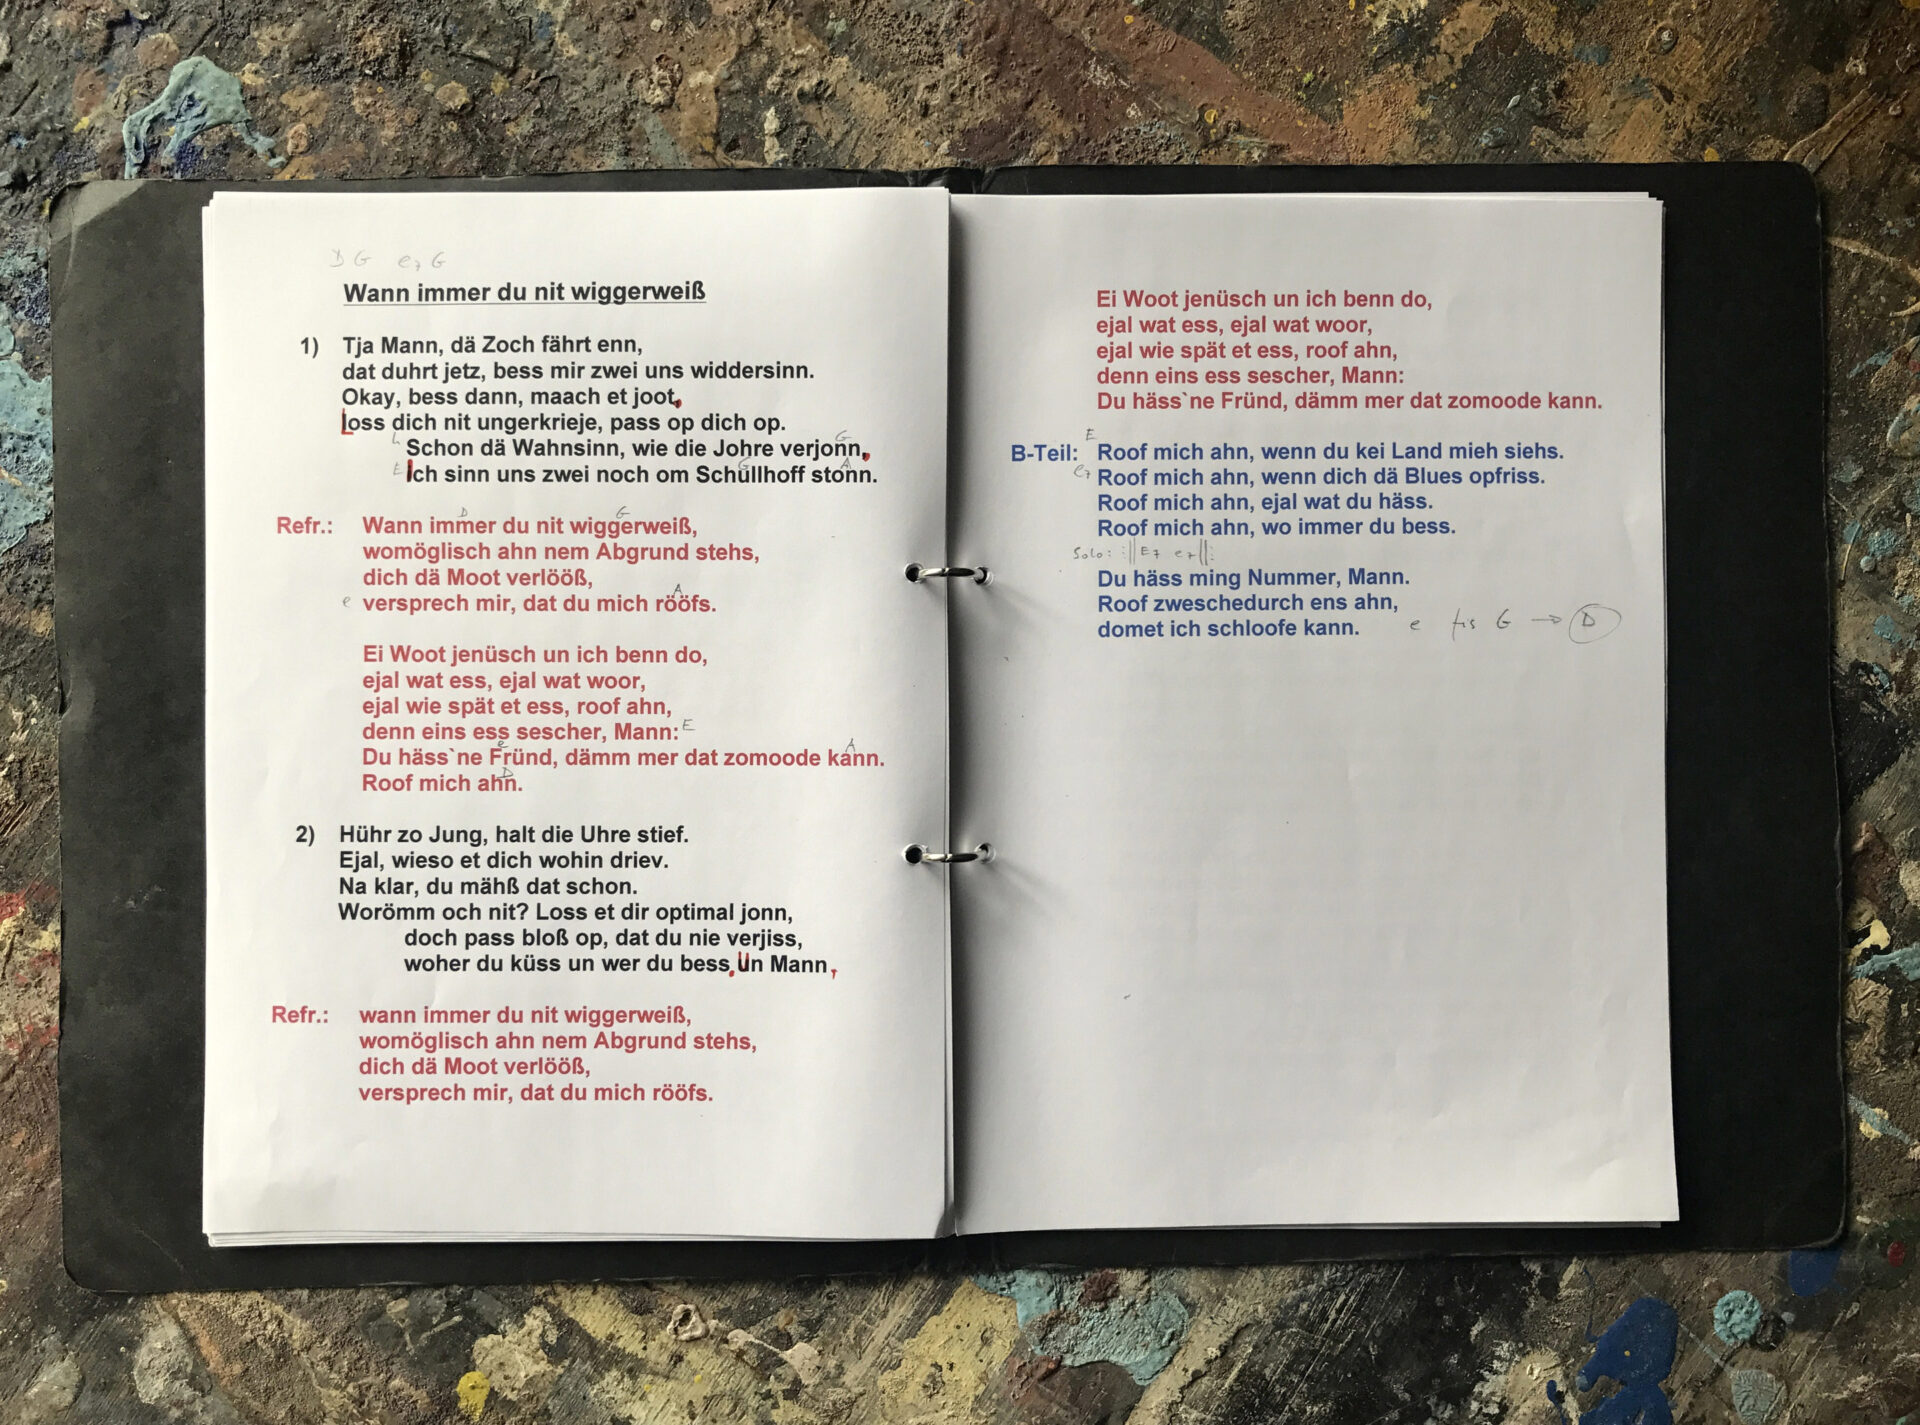 D G e7 G
Wann immer du nit wiggerweiß
1) Tja Mann, dä Zoch fährt enn,
dat duhrt jetz, bess mir zwei uns widdersinn.
Okay, bess dann, maach et joot,
Loss dich nit ungerkrieje, pass op dich op.
G
Schon dä Wahnsinn, wie die Johre verjonn,
E G A
Ich sinn uns zwei noch om Schullhoff stonn.
D G
Refr.: Wann immer du nit wiggerweiß,
womöglisch ahn nem Abgrund stehs,
dich dä Moot verlööß,
A
e versprech mir, dat du mich rööfs.
Ei Woot jenüsch un ich benn do,
ejal wat ess, ejal wat woor,
ejal wie spät et ess, roof ahn,
denn eins ess sescher, Mann: E
e A
Du häss`ne Fründ, dämm mer dat zomoode kann.
D
Roof mich ahn.
2) Hühr zo Jung, halt die Uhre stief.
Ejal, wieso et dich wohin driev.
Na klar, du mähß dat schon.
Worömm och nit? Loss et dir optimal jonn,
doch pass bloß op, dat du nie verjiss,
woher du küss un wer du bess, Un Mann,
Refr.: wann immer du nit wiggerweiß,
womöglisch ahn nem Abgrund stehs,
dich dä Moot verlööß,
versprech mir, dat du mich rööfs.
Ei Woot jenüsch un ich benn do,
ejal wat ess, ejal wat woor,
ejal wie spät et ess, roof ahn,
denn eins ess sescher, Mann:
Du häss`ne Fründ, dämm mer dat zomoode kann.
E
B-Teil: Roof mich ahn, wenn du kei Land mieh siehs.
e7 Roof mich ahn, wenn dich dä Blues opfriss.
Roof mich ahn, ejal wat du häss.
Roof mich ahn, wo immer du bess.
Solo: :|| E7 e7 ||:
Du häss ming Nummer, Mann.
Roof zweschedurch ens ahn,
domet ich schloofe kann. e fis G → D